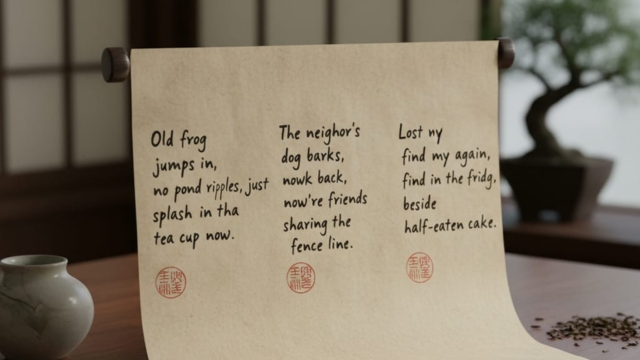 Old frog
jumps in,
no pond ripples, just
splash in tha
tea cup now.
The neighor's
dog barks,
nowk back,
now're friends
sharing the
fence line.
Lost ny
find my again,
find in the fridg,
beside
half-eaten cake.